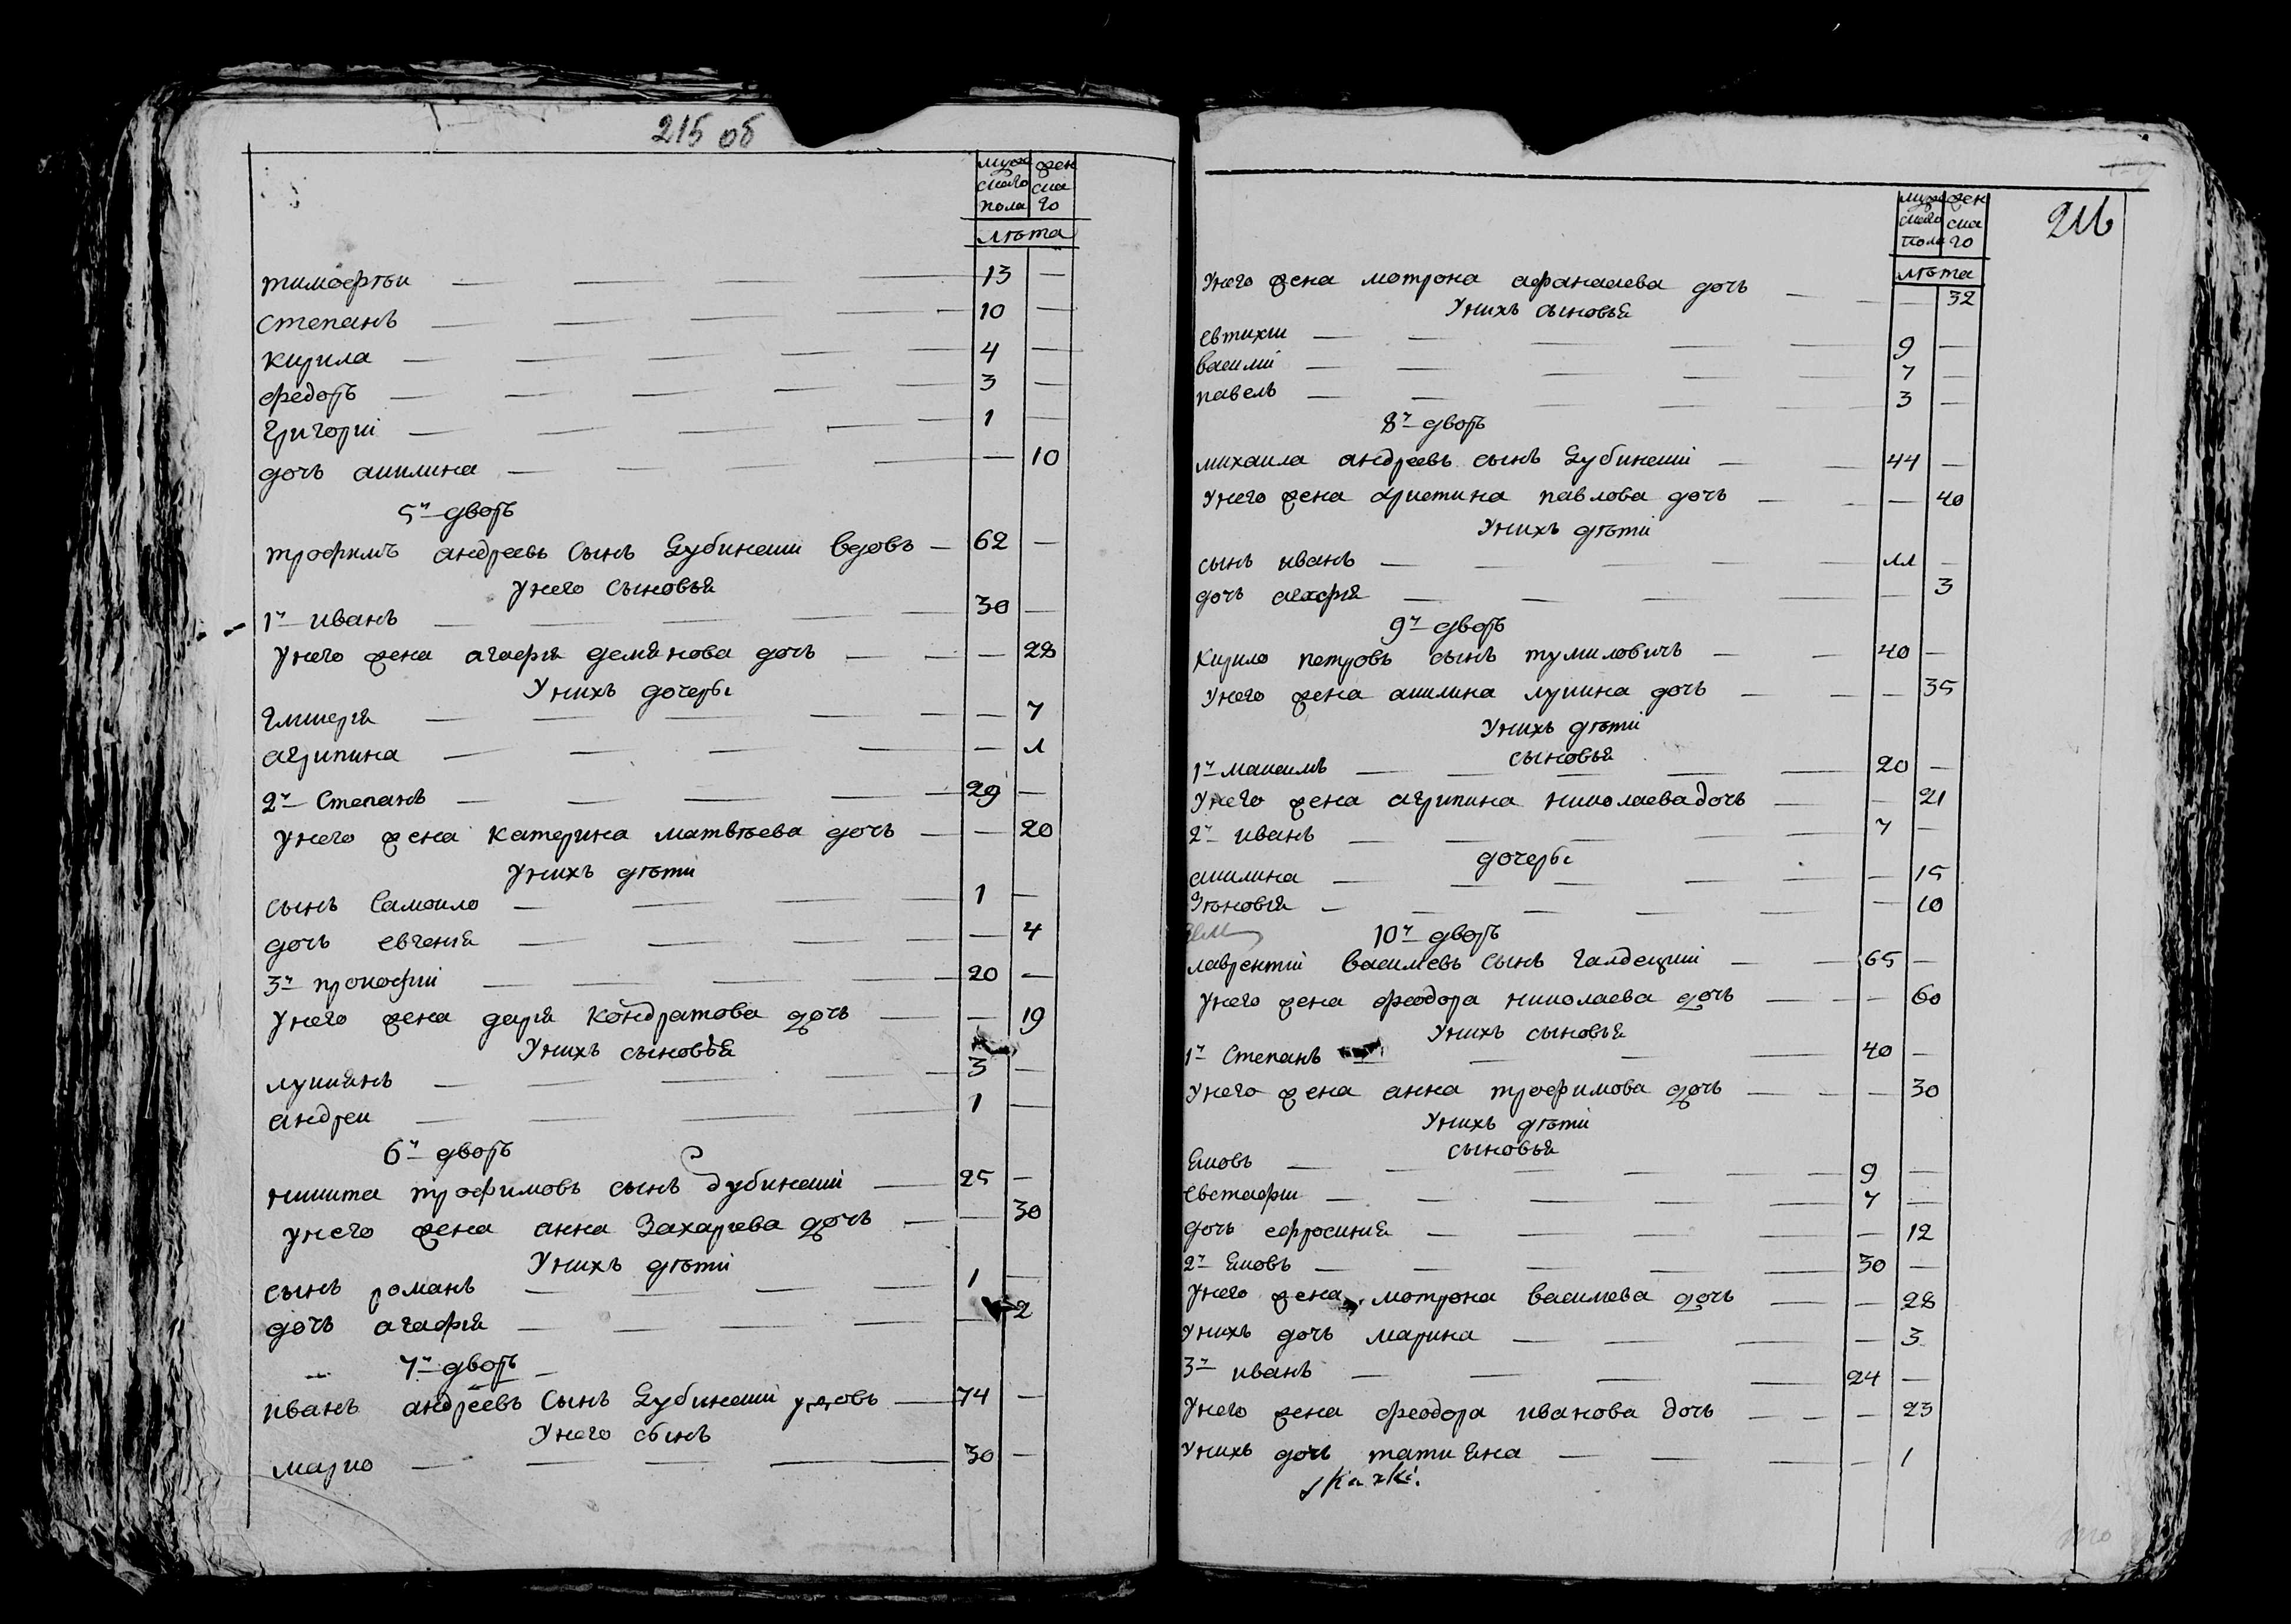 215 об
мужскаго пола женскаго
лѣта
тимофѣи — 13 —
степанъ — 10 —
кирила — 4 —
федоръ — 3 —
григорiй — 1 —
дочь акилина — — 10
5й дворъ
трофимъ андреевъ сынъ дубинскiи вдовъ — 62 —
унего сыновья
1й иванъ — 30 —
унего жена агафiя демянова дочь — — 28
унихъ дочеры
гликерiя — — 7
агрипина — — л
2й степанъ — 29 —
унего жена катерина матвѣева дочь — — 20
унихъ дѣти
сынъ самоило — 1 —
дочь евгенiя — — 4
3й прокофiй — 20 —
унего жена дарiя кондратова дочь — — 19
унихъ сыновья
лукиянъ — 3 —
андреи — 1 —
6й дворъ
никита трофимовъ сынъ дубинскiй — 25 —
унего жена анна захарiева дочь — — 30
унихъ дѣти
сынъ романъ — 1 —
дочь агафiя — — 2
7й дворъ
иванъ андреевъ сынъ дубинскiй удовъ — 74 —
унего сынъ
марко — 30 —
216
мужскаго пола женскаго
лѣта
унего жена мотрона афанасиева дочь — — 32
унихъ сыновья
евтихiи — 9 —
василiй — 7 —
павелъ — 3 —
8й дворъ
михаила андреевъ сынъ дубинскiй — 44 —
унего жена христина павлова дочь — — 40
унихъ дѣти
сынъ иванъ — лл —
дочь агафiя — — 3
9й дворъ
кирило петровъ сынъ тумиловичъ — 40 —
унего жена акилина лукина дочь — — 35
унихъ дѣти
сыновья
1й максимъ — 20 —
унего жена агрипина николаева дочь — — 21
2й иванъ — 7 —
дочеры
акилина — — 15
зѣновiя — — 10
10й дворъ
лаврентiй василiевъ сынъ галдецкiй — 65 —
унего жена феодора николаева дочь — — 60
унихъ сыновья
1й степанъ — 40 —
унего жена анна трофимова дочь — — 30
унихъ дѣти
сыновья
яковъ — 9 —
евстафiи — 7 —
дочь ефросиния — — 12
2й яковъ — 30 —
унего жена мотрона василiева дочь — — 28
унихъ дочь марина — — 3
3й иванъ — 24 —
унего жена феодора иванова дочь — — 23
унихъ дочь татияна — — 1